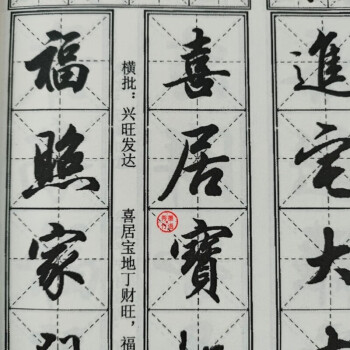 進宅大
喜居寳
横批：兴旺发达
喜居宝地丁财旺，福
福照家